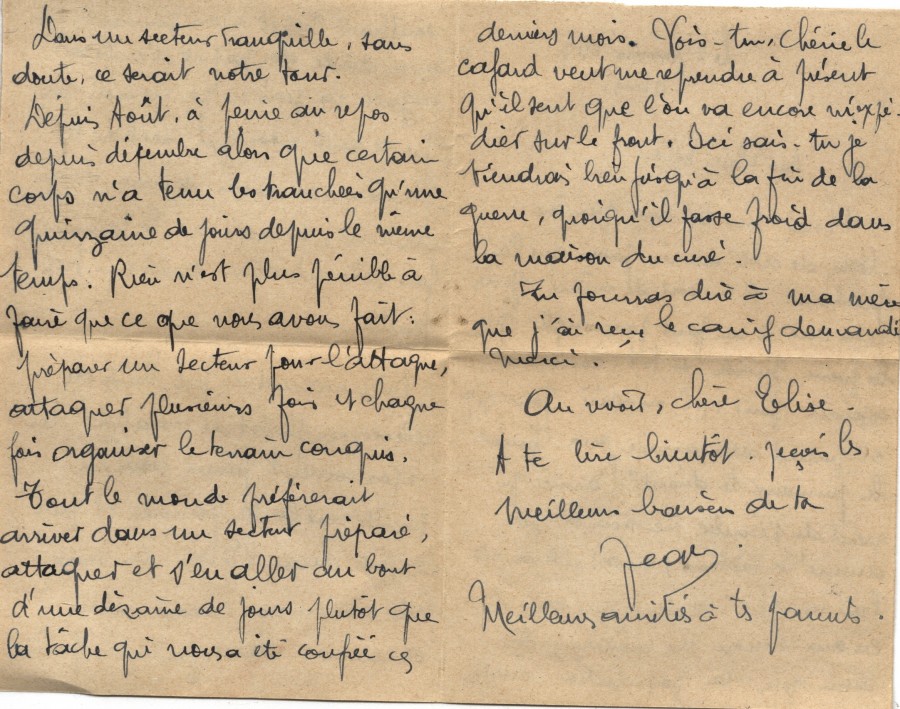 Dans un secteur tranquille, sans
doute, ce serait notre tour.
Depuis Août, à peine au repos
depuis décembre alors que certain
corps n'a tenu les tranchées qu'une
quinzaine de jours depuis le même
temps. Rien n'est plus pénible à
faire que ce que nous avons fait :
préparer un secteur pour l'attaque,
attaquer plusieurs fois et chaque
fois organiser le terrain conquis.
Tout le monde préférerait
arriver dans un secteur préparé,
attaquer et s'en aller au bout
d'une dizaine de jours plutôt que
la tâche qui nous a été confiée ces
derniers mois. Vois-tu, chérie le
cafard veut me reprendre à présent
qu'il sent que l'on va encore m'expé-
dier sur le front. Ici sais-tu je
tiendrais bien jusqu'à la fin de la
guerre, quoiqu'il fasse froid dans
la maison du curé.
Tu pourras dire à ma mère
que j'ai reçu le canif demandé
merci.
Au revoir, chère Elise.
A te lire bientôt. reçois les
meilleurs baisers de ton
Jean.
Meilleures amitiés à tes parents.